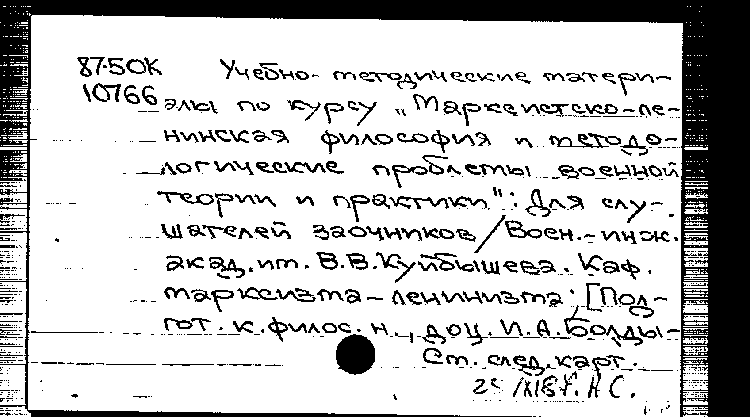 87-5ОК Учебно-методические матери-
10766 алы по курсу „Марксистско-ле-
нинская философия и методо-
логические проблемы военной
теории и практики": Для слу-
шателей заочников / Воен.-инж.
акад. им. В.В.Куйбышева. Каф.
марксизма-ленинизма; [Под-
гот. к.филос.н., доц. И.А.Болды-
См. след. карт.